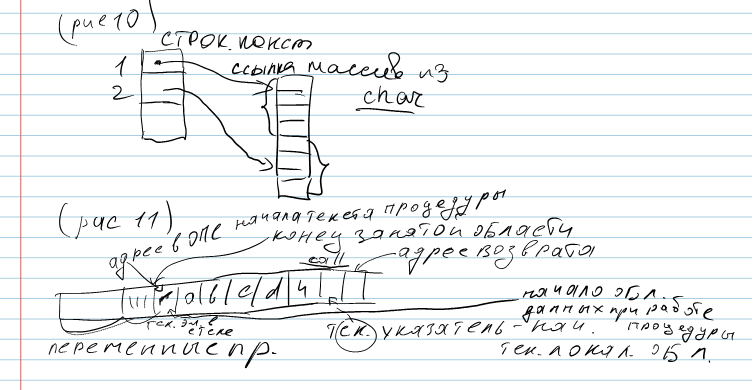 (рис 10)
строк. конст
1
ссылка массив из
2
char
(рис 11)
адрес в ОП начала текста процедуры
конец занятой области
call
адрес возврата
a b c d 4
начало обл.
тек. эл. в
стеке
данных при работе
тек. указатель - нач.
процедуры
переменные пр.
тек. локал. обл.